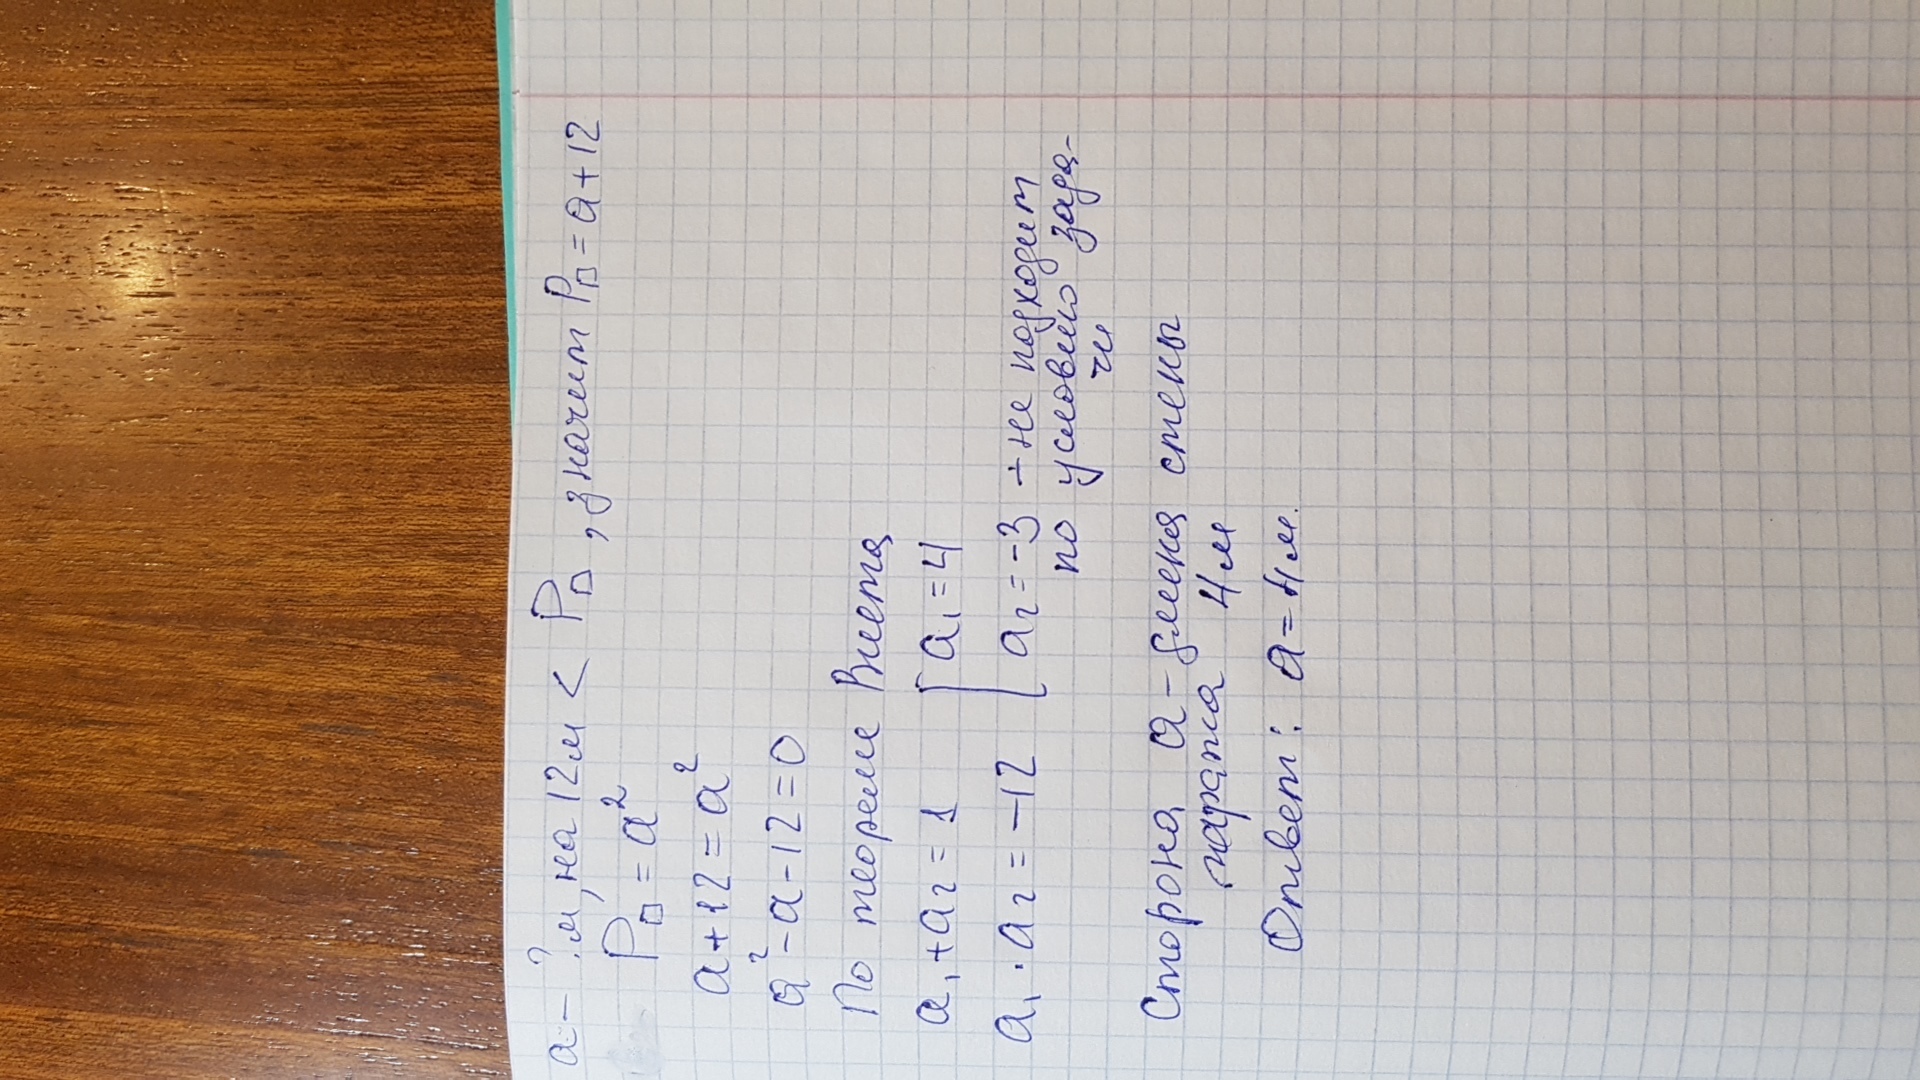 a - ? м, на 12м < P□, значит P□ = a + 12
P□ = a²
a + 12 = a²
a² - a - 12 = 0
По теореме Виета
a₁ + a₂ = 1 [ a₁ = 4
a₁ · a₂ = -12 [ a₂ = -3 - не подходит
по условию зада-
чи
Сторона a - длина стены
гаража 4 м
Ответ: a = 4 м.